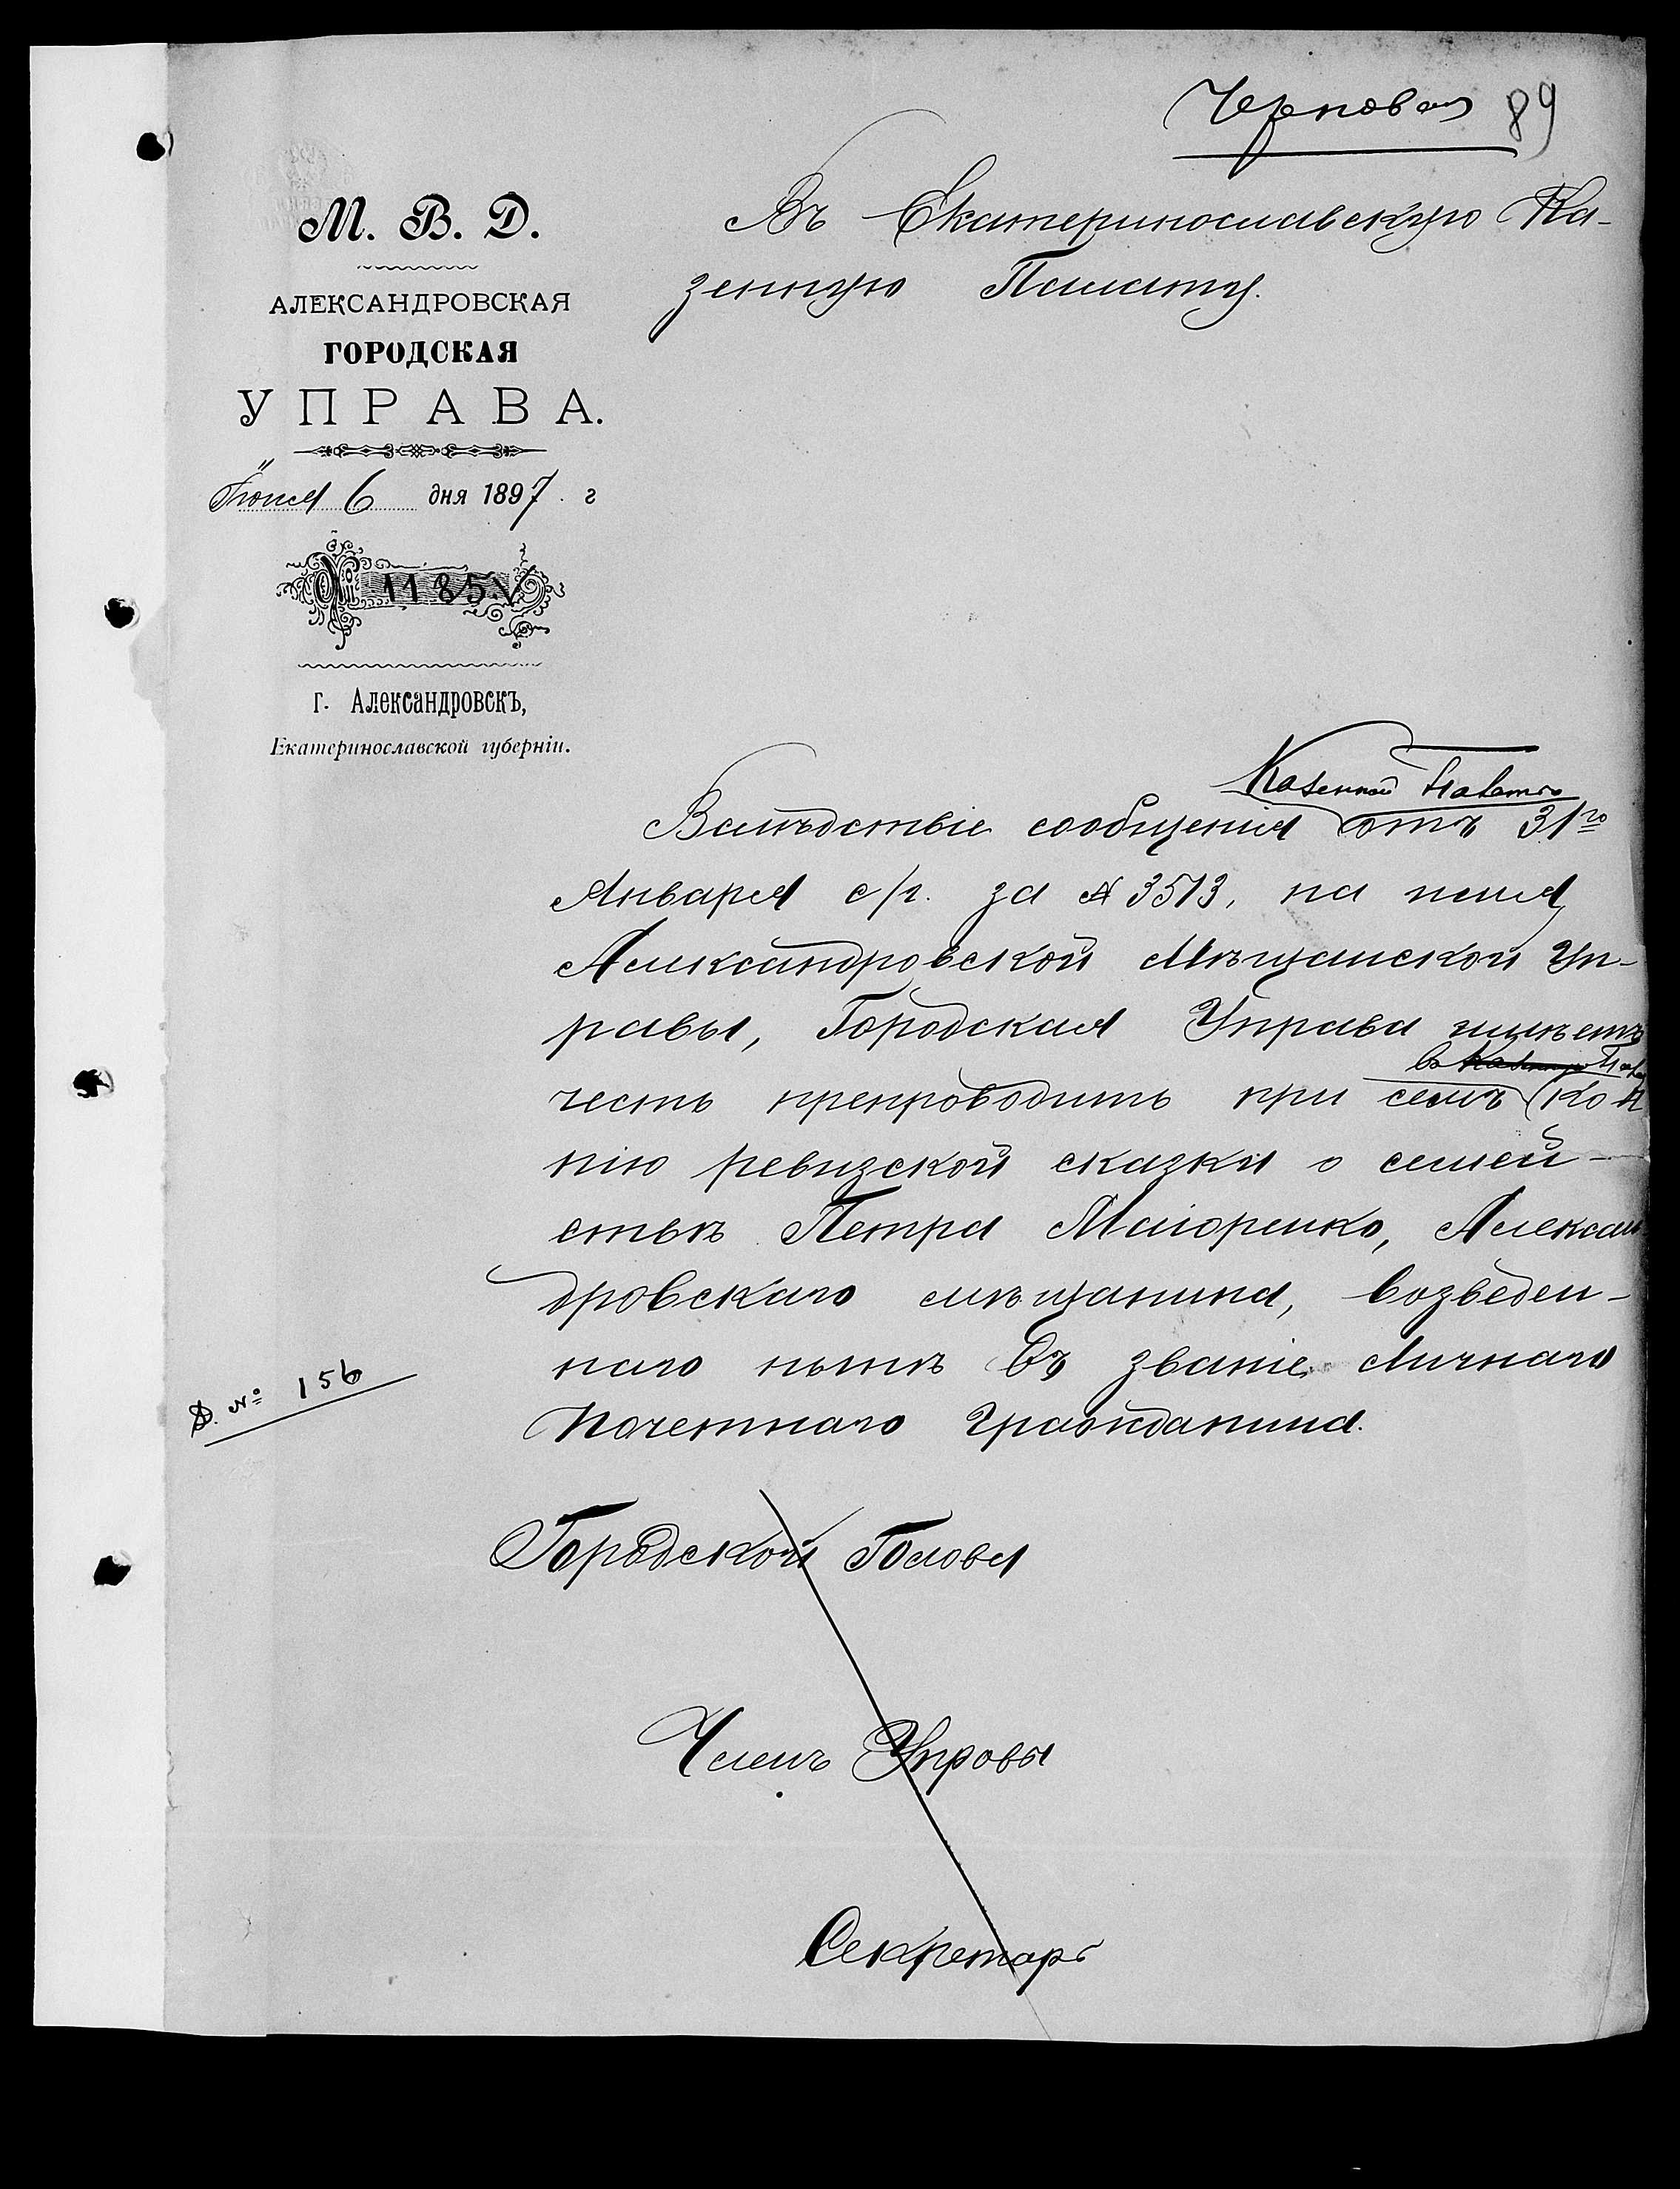 Черновая 89
М. В. Д.
АЛЕКСАНДРОВСКАЯ
ГОРОДСКАЯ
УПРАВА.
Іюня 6 дня 1897 г
№ 1185
г. Александровскъ,
Екатеринославской губерніи.
Въ Екатеринославскую Ка-
зенную Палату.
Казенной Палаты
Вслѣдствіе сообщенія отъ 31го
Января с/г. за № 3513, на имя
Александровской Мѣщанской Уп-
равы, Городская Управа имѣетъ
в Казенную Палату
честь препроводить при семъ ко
пію ревизской сказки о семей-
ствѣ Петра Маіоренко, Алексан
дровскаго мѣщанина, возведен-
наго нынѣ въ званіе Личнаго
Почетнаго Гражданина.
Д. № 156
Городской Голова
Членъ Управы
Секретарь